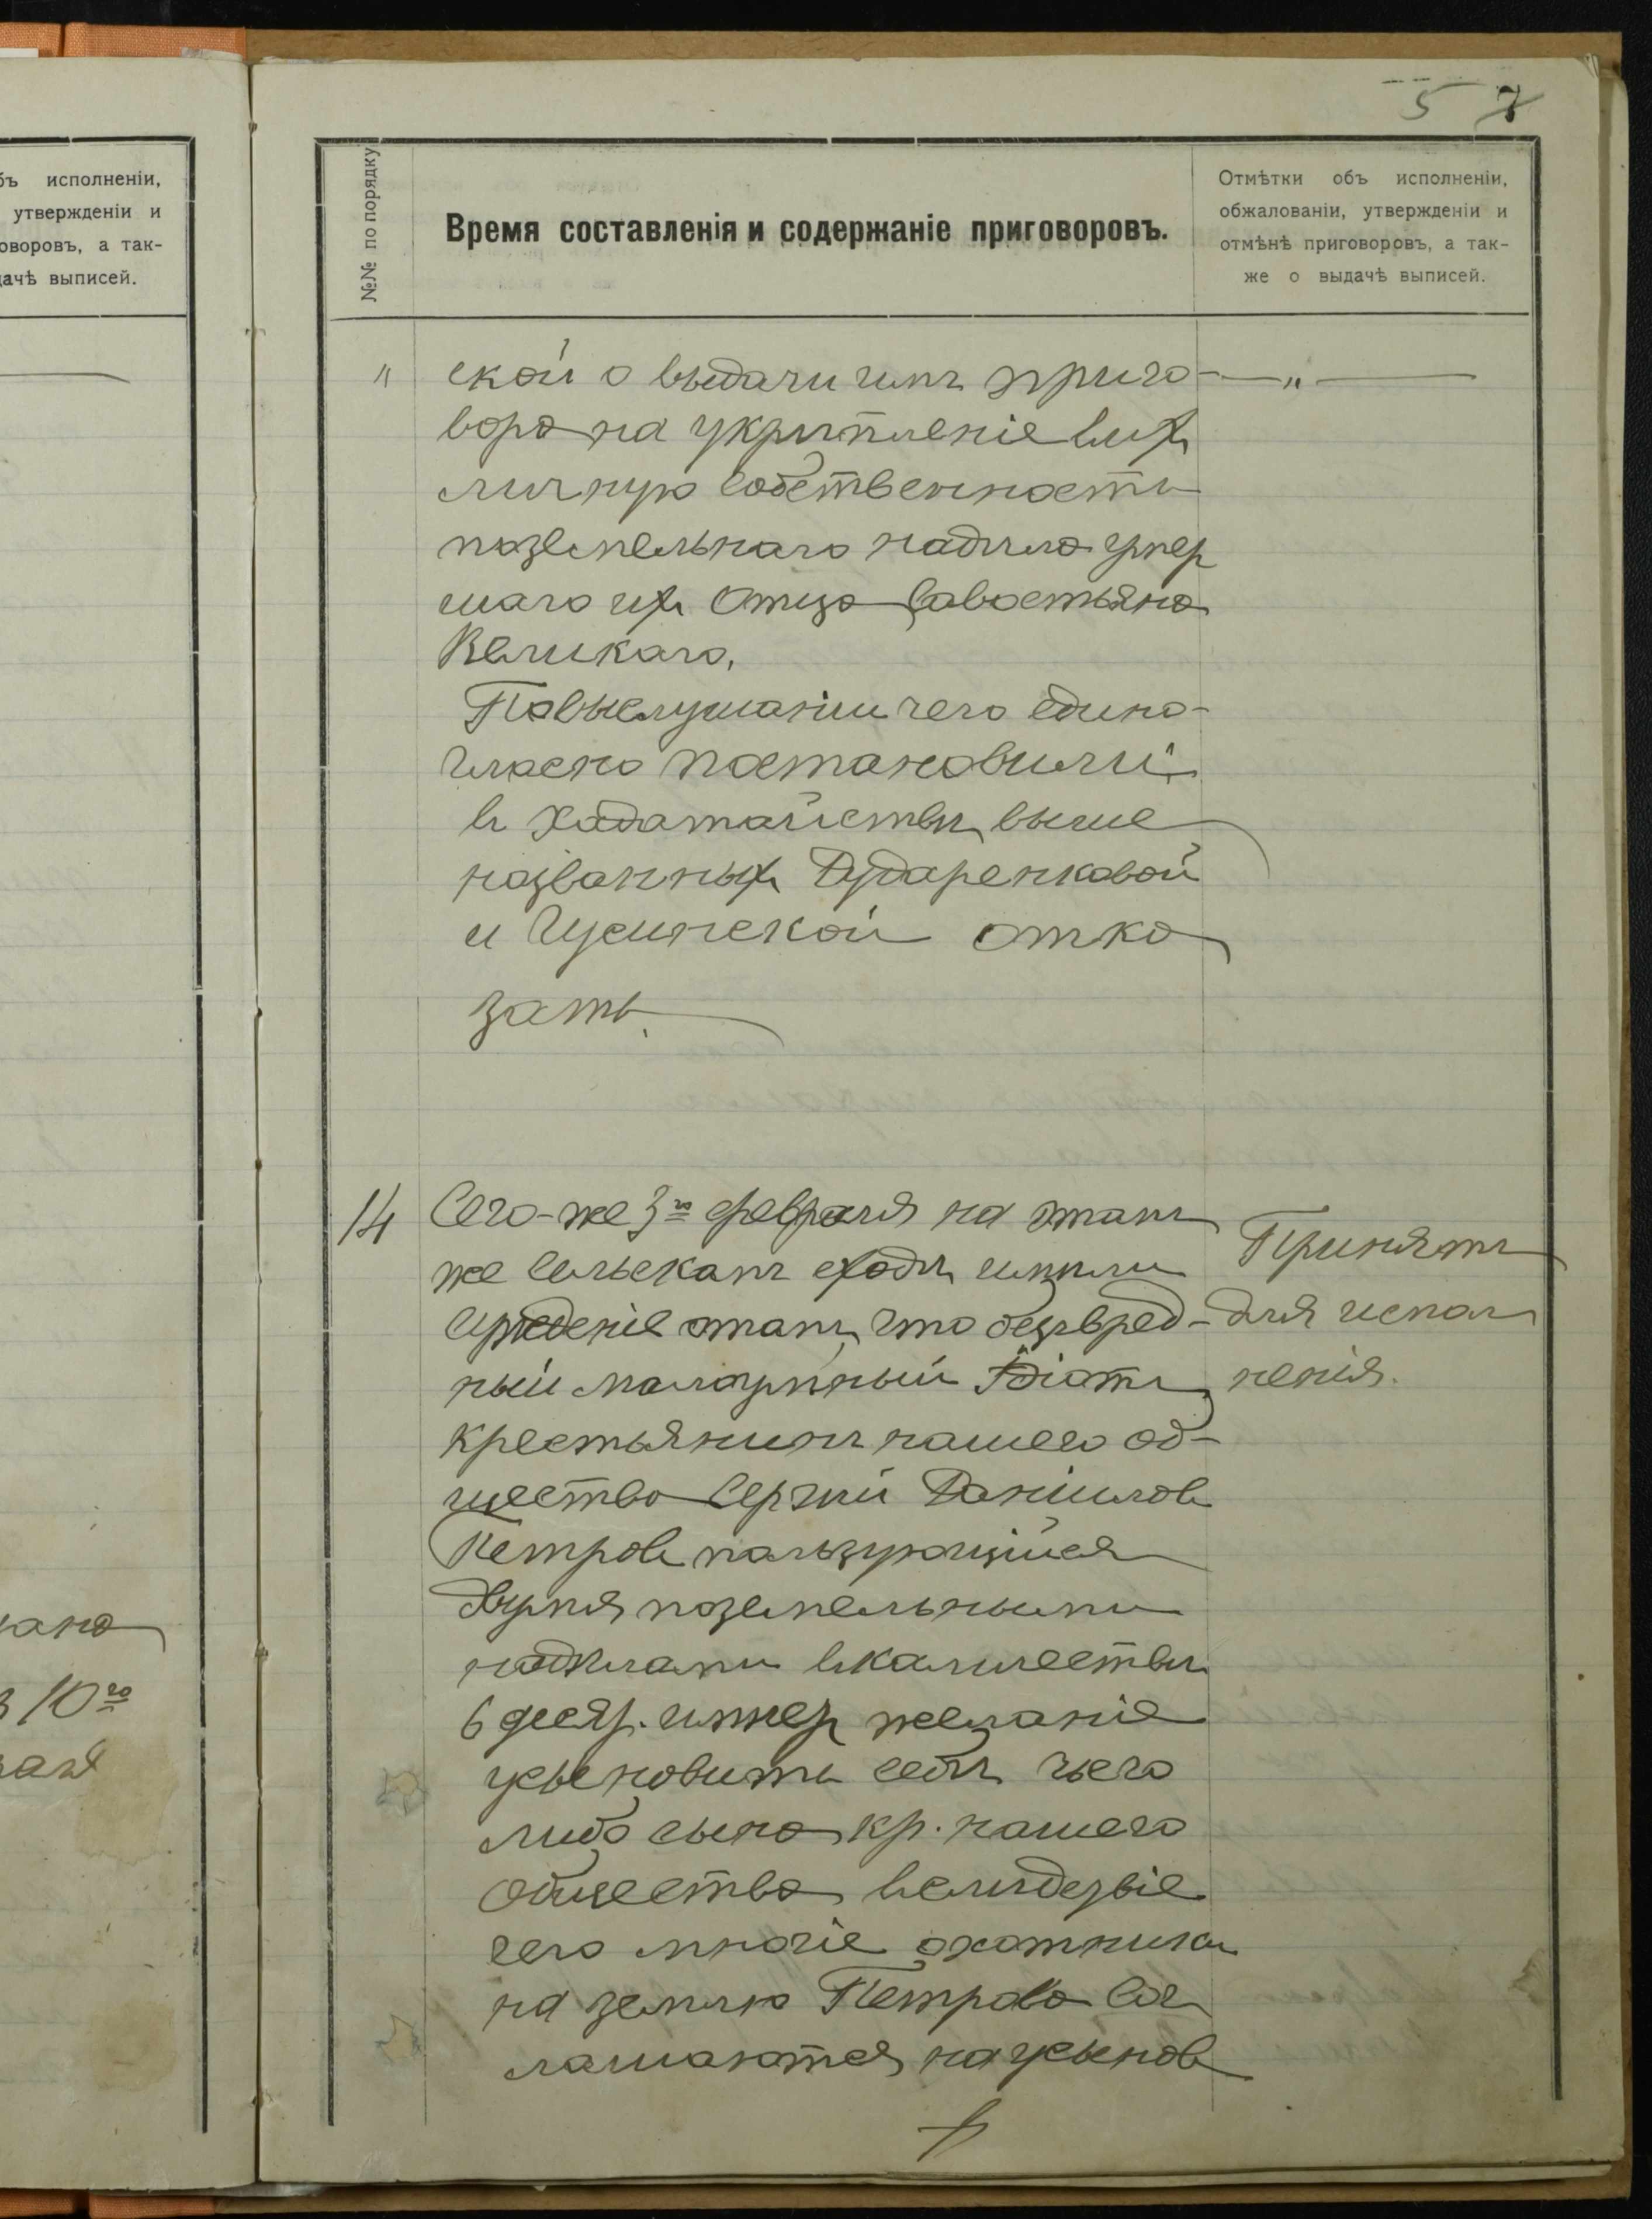 5 7
бъ исполненіи,
утвержденіи и
оворовъ, а так-
дачѣ выписей.
№№ по порядку
Время составленія и содержаніе приговоровъ.
Отмѣтки объ исполненіи,
обжалованіи, утвержденіи и
отмѣнѣ приговоровъ, а так-
же о выдачѣ выписей.
" ской о выдачи имъ приго- — " —
вора на укрѣпленіе въ ихъ
личную собственность
поземельнаго надѣла умер
шаго ихъ отца Савостьяна
Великаго,
По выслушаніи чего едино-
гласно постановили:
въ хадатайствѣ выше
названныхъ Дударенковой
и Гусинской отка
зать.
14 Сего-же 3го февраля на этамъ
же сельскамъ сходѣ имѣли
сужденіе отамъ, что безвред-
ный малоумный Идіотъ
крестьянинъ нашего об-
щества Сергѣй Даніиловъ
Петровъ пальзующійся
двумя поземельными
надѣлами въ каличествѣ
6 десят. имѣетъ желаніе
усыновить себѣ чьего
либо сына кр. нашего
общества, вслѣдсвіе
чего многіе охотники
на землю Петрова сог
лашаются на усынов
Принятъ
для испол
ненія.
10го